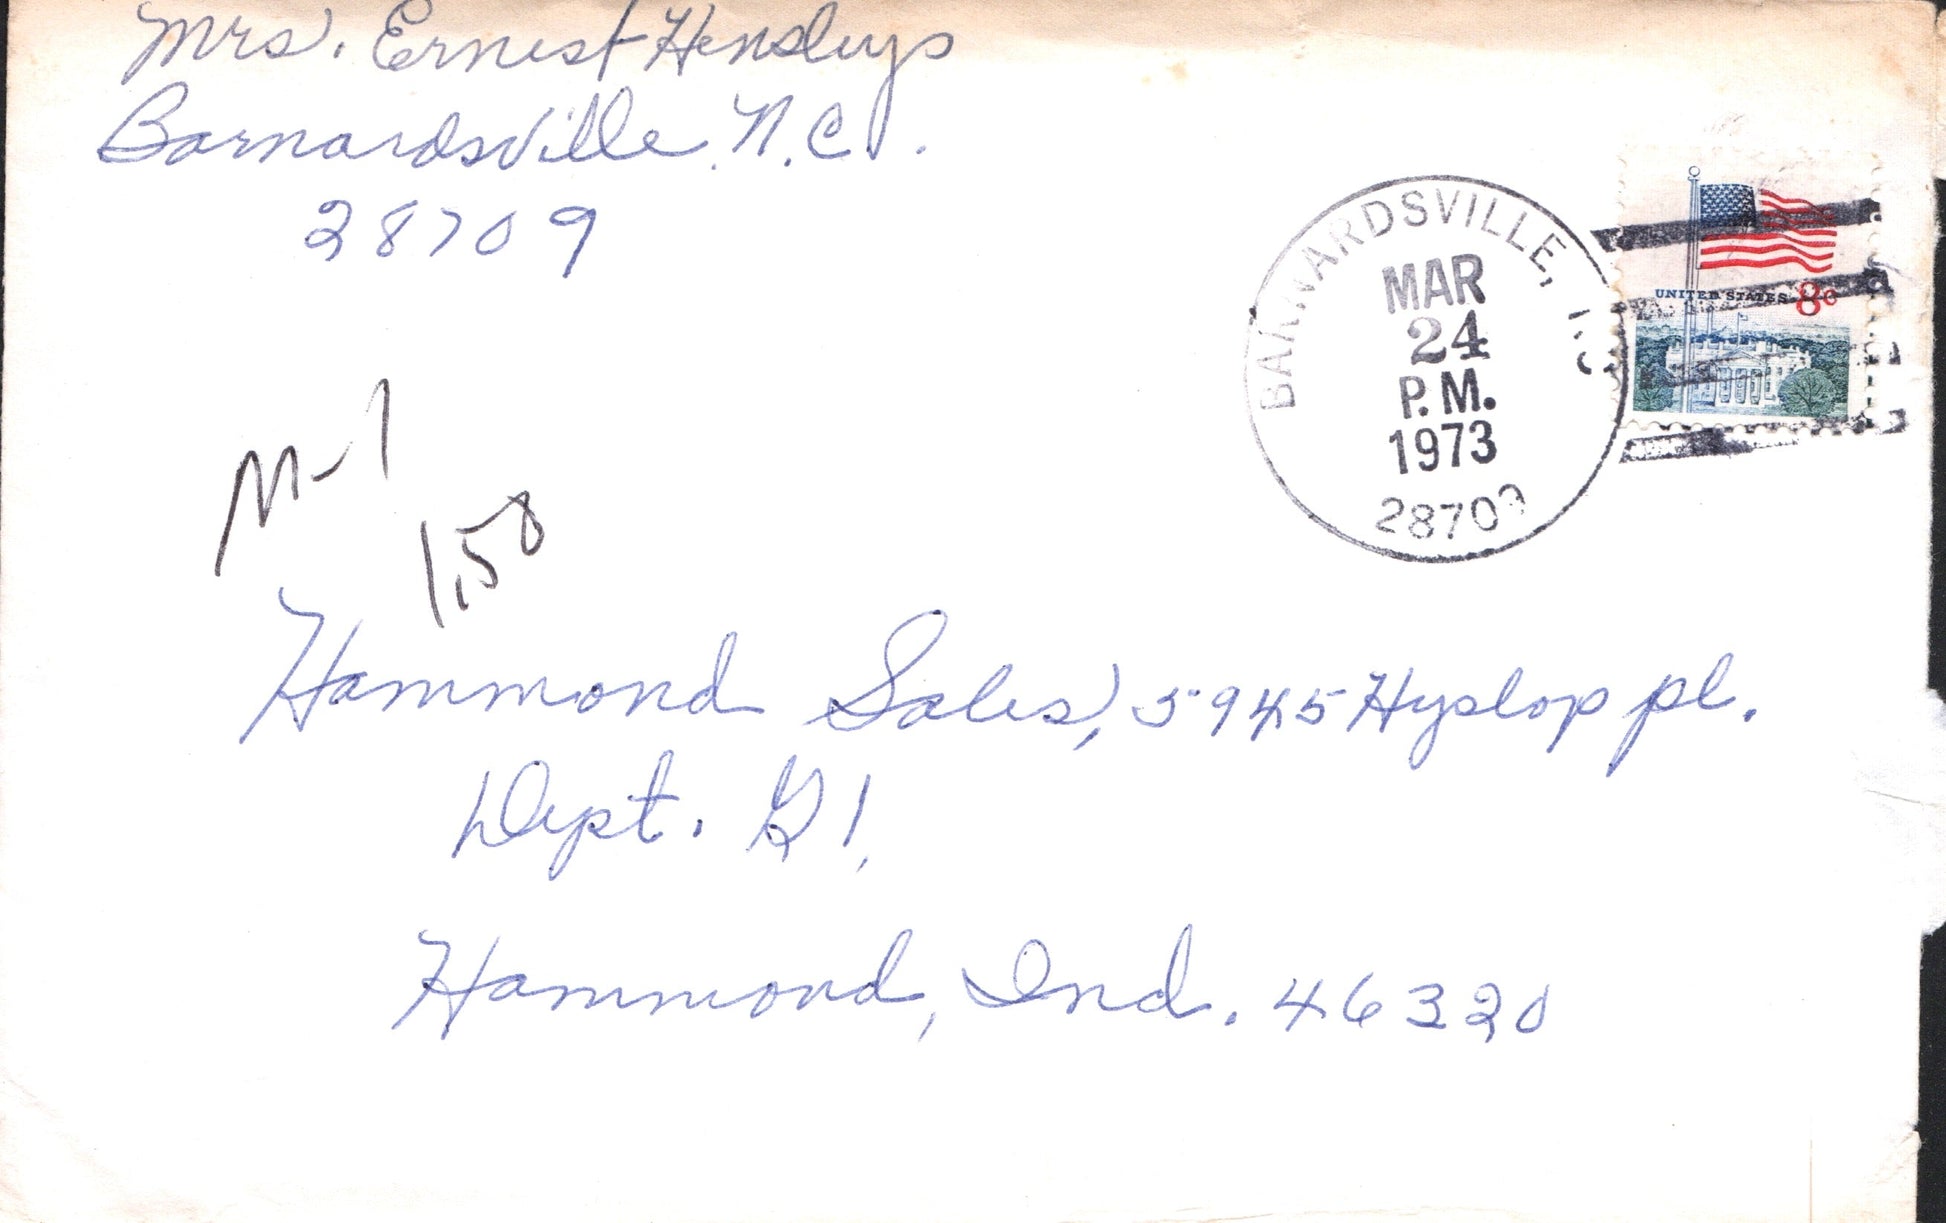 Mrs. Ernest Hensleys
Barnardsville, N.C.
28709
BARNARDSVILLE, NC
MAR
24
P.M.
1973
28709
UNITED STATES 8c
M-1
1.50
Hammond Sales, 5945 Hyslop pl.
Dept. G1,
Hammond, Ind. 46320